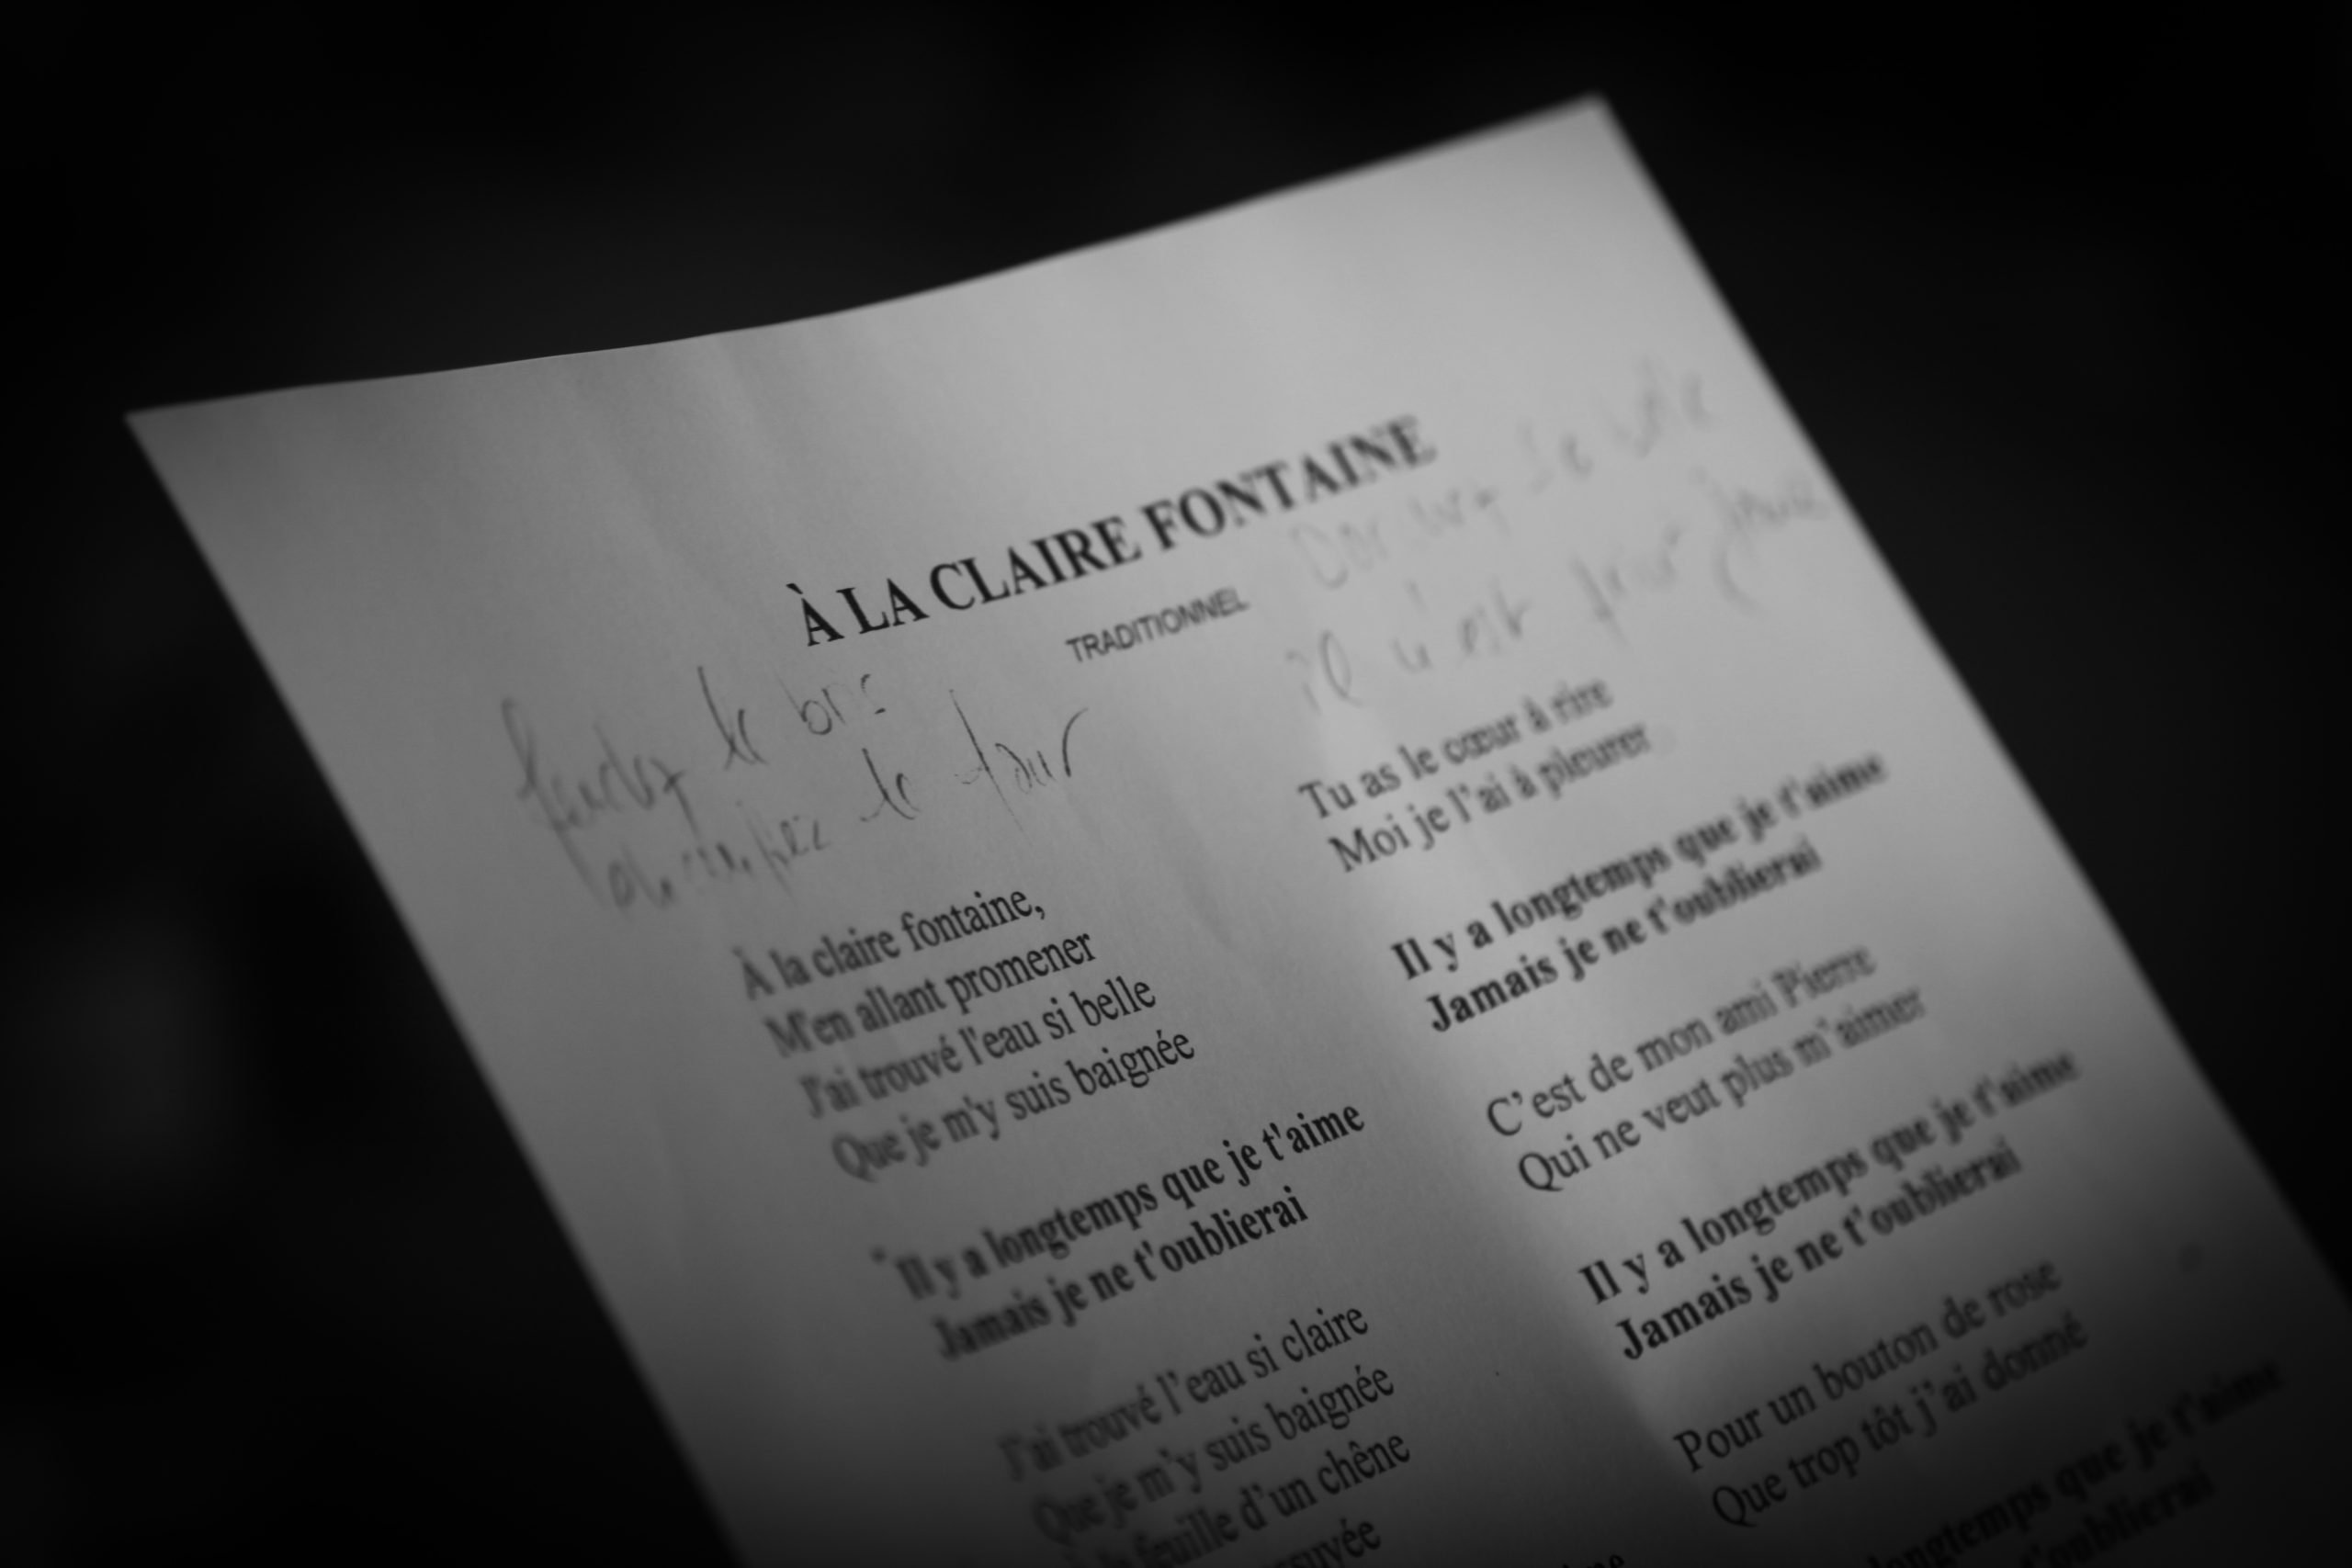 À LA CLAIRE FONTAINE
TRADITIONNEL
fendez le bois
le four
il n'est
À la claire fontaine,
M'en allant promener
J'ai trouvé l'eau si belle
Que je m'y suis baignée
Il y a longtemps que je t'aime
Jamais je ne t'oublierai
J'ai trouvé l'eau si claire
Que je m'y suis baignée
feuille d'un chêne
Tu as le cœur à rire
Moi je l'ai à pleurer
Il y a longtemps que je t'aime
Jamais je ne t'oublierai
C'est de mon ami Pierre
Qui ne veut plus m'aimer
Il y a longtemps que je t'aime
Jamais je ne t'oublierai
Pour un bouton de rose
Que trop tôt j'ai donné
longtemps que je t'aime
t'oublierai